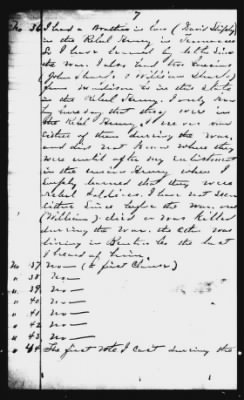 7
No 36 I had a Brother in Law (David
in the Rebel Army in Tennessee
& I have learned by letter since
the war. I also had two Cousins
(John Sharp & William Sharp)
from Madison Co in this State
in the Rebel Army. I only know
by hearsay that they were in
the Rebel Army, I never saw
either of them during the war,
and did not know where they
were until after my enlistment
in the Union Army when I
simply learned that they were
Rebel Soldiers. I have not seen
either since before the war, one
(William) died or was killed
during the war, the other was
living in Benton Co the last
I heard of him.
No 37 No — (to first Clause)
" 38 No —
" 39 No —
" 40 No —
" 41 No —
" 42 No —
" 43 No —
" 44 The first vote I cast during the